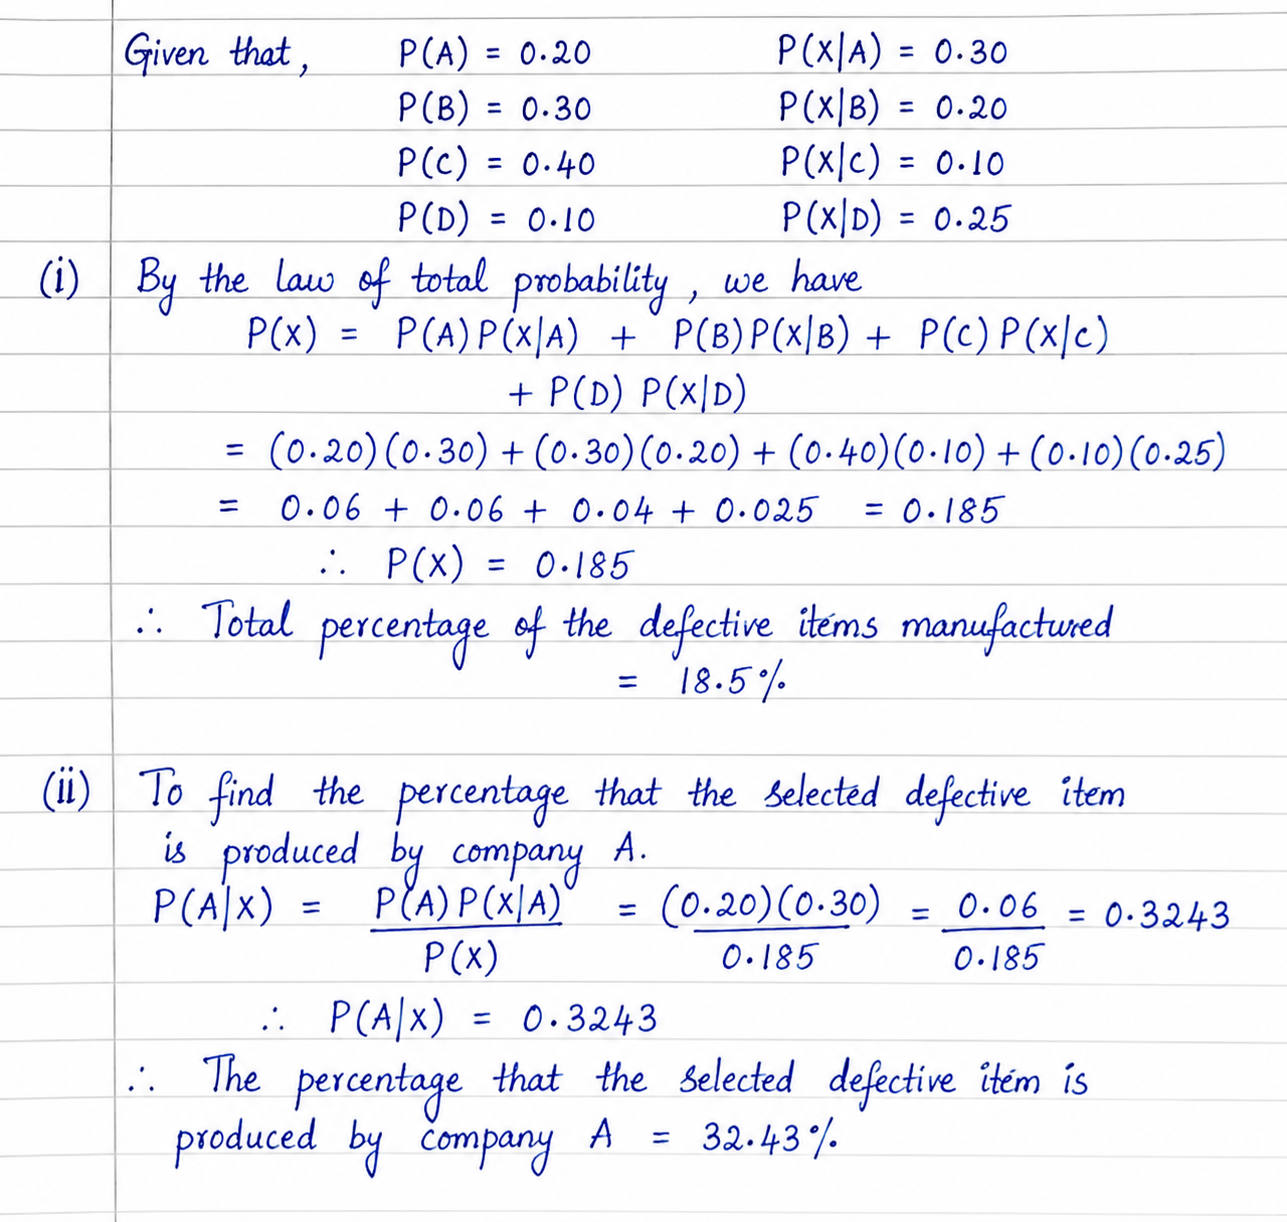 Given that, P(A) = 0.20 P(X|A) = 0.30
P(B) = 0.30 P(X|B) = 0.20
P(C) = 0.40 P(X|C) = 0.10
P(D) = 0.10 P(X|D) = 0.25
(i) By the law of total probability, we have
P(X) = P(A)P(X|A) + P(B)P(X|B) + P(C)P(X|C)
+ P(D) P(X|D)
= (0.20)(0.30) + (0.30)(0.20) + (0.40)(0.10) + (0.10)(0.25)
= 0.06 + 0.06 + 0.04 + 0.025 = 0.185
∴ P(X) = 0.185
∴ Total percentage of the defective items manufactured
= 18.5%
(ii) To find the percentage that the selected defective item
is produced by company A.
P(A|X) = P(A)P(X|A) / P(X) = (0.20)(0.30) / 0.185 = 0.06 / 0.185 = 0.3243
∴ P(A|X) = 0.3243
∴ The percentage that the selected defective item is
produced by company A = 32.43%